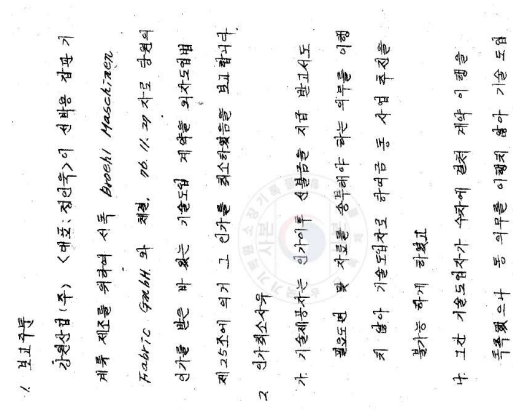 1. 보고주문
강원산업(주) <대표:정인욱>이 선박용 갑판기
계류 제조를 위하여 서독 Broehl Maschinen
Fabric GmbH. 와 체결, 76.11.29 자로 당원의
인가를 받은 바 있는 기술도입 계약을 외자도입법
제25조에 의거 그 인가를 취소하였음을 보고합니다.
2 인가취소사유
가. 기술제공자는 인가이후 선불금을 지급 받고서도
필요도면 및 자료를 송부해야 하는 의무를 이행
치 않아 기술도입자로 하여금 동 사업 추진을
불가능 하게 하였고
나. 그간 기술도입자가 수차에 걸쳐 계약 이행을
독촉했으나 동 의무를 이행치 않아 기술 도입